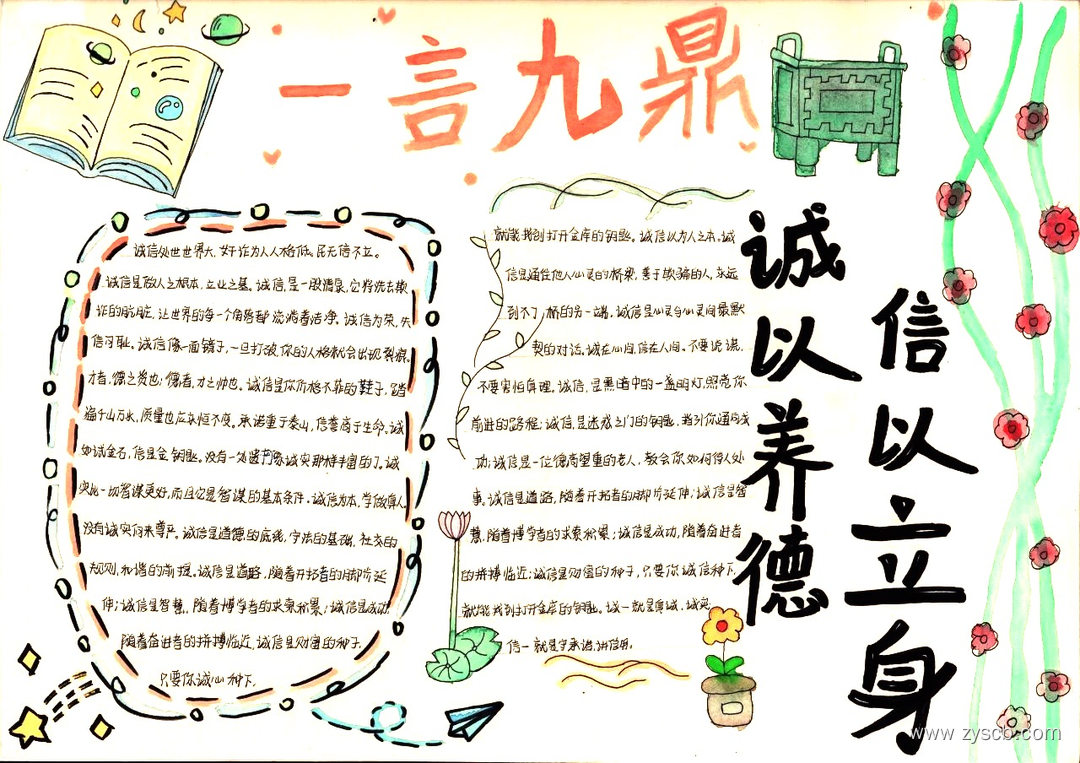 一言九鼎
诚信处世世界大,奸诈为人人格低,民无信不立。
诚信是做人之根本,立业之基。诚信是一股清泉,它将洗去欺
诈的肮脏,让世界的每一个角落都流淌着洁净。诚信为荣,失
信可耻。诚信像一面镜子,一旦打破,你的人格就会出现裂痕。
才者,德之资也;德者,才之帅也。诚信是你价格不菲的鞋子,踏
遍千山万水,质量也应永恒不变。承诺重于泰山,信誉高于生命。诚
如试金石,信是金钥匙。没有一处遗产像诚实那样丰富的了。诚
实比一切智谋更好,而且它是智谋的基本条件。诚信为本,学做真人
没有诚实何来尊严。诚信是道德的底线,守法的基础,社交的
规则,和谐的前提。诚信是道路,随着开拓者的脚步延
伸;诚信是智慧,随着博学者的求索积累;诚信是成功,
随着奋进者的拼搏临近。诚信是财富的种子,
只要你诚心种下,
就能找到打开金库的钥匙。诚信以为人之本,诚
信是通往他人心灵的桥梁,善于欺骗的人,永远
到不了桥的另一端,诚信是心灵与心灵间最默
契的对话。诚在心间,信在人间。不要说谎,
不要害怕真理。诚信,是黑暗中的一盏明灯,照亮你
前进的路程;诚信,是迷惑之门的钥匙,指引你通向成
功;诚信是一位德高望重的老人,教会你如何待人处
事。诚信是道路,随着开拓者的脚步延伸;诚信是智
慧,随着博学者的求索积累;诚信是成功,随着奋进者
的拼搏临近;诚信是财富的种子,只要你诚信种下,
就能找到打开金库的钥匙。诚一就是真诚、诚实;
信一就是守承诺、讲信用。
诚以养德
信以立身
www.zyscb.com